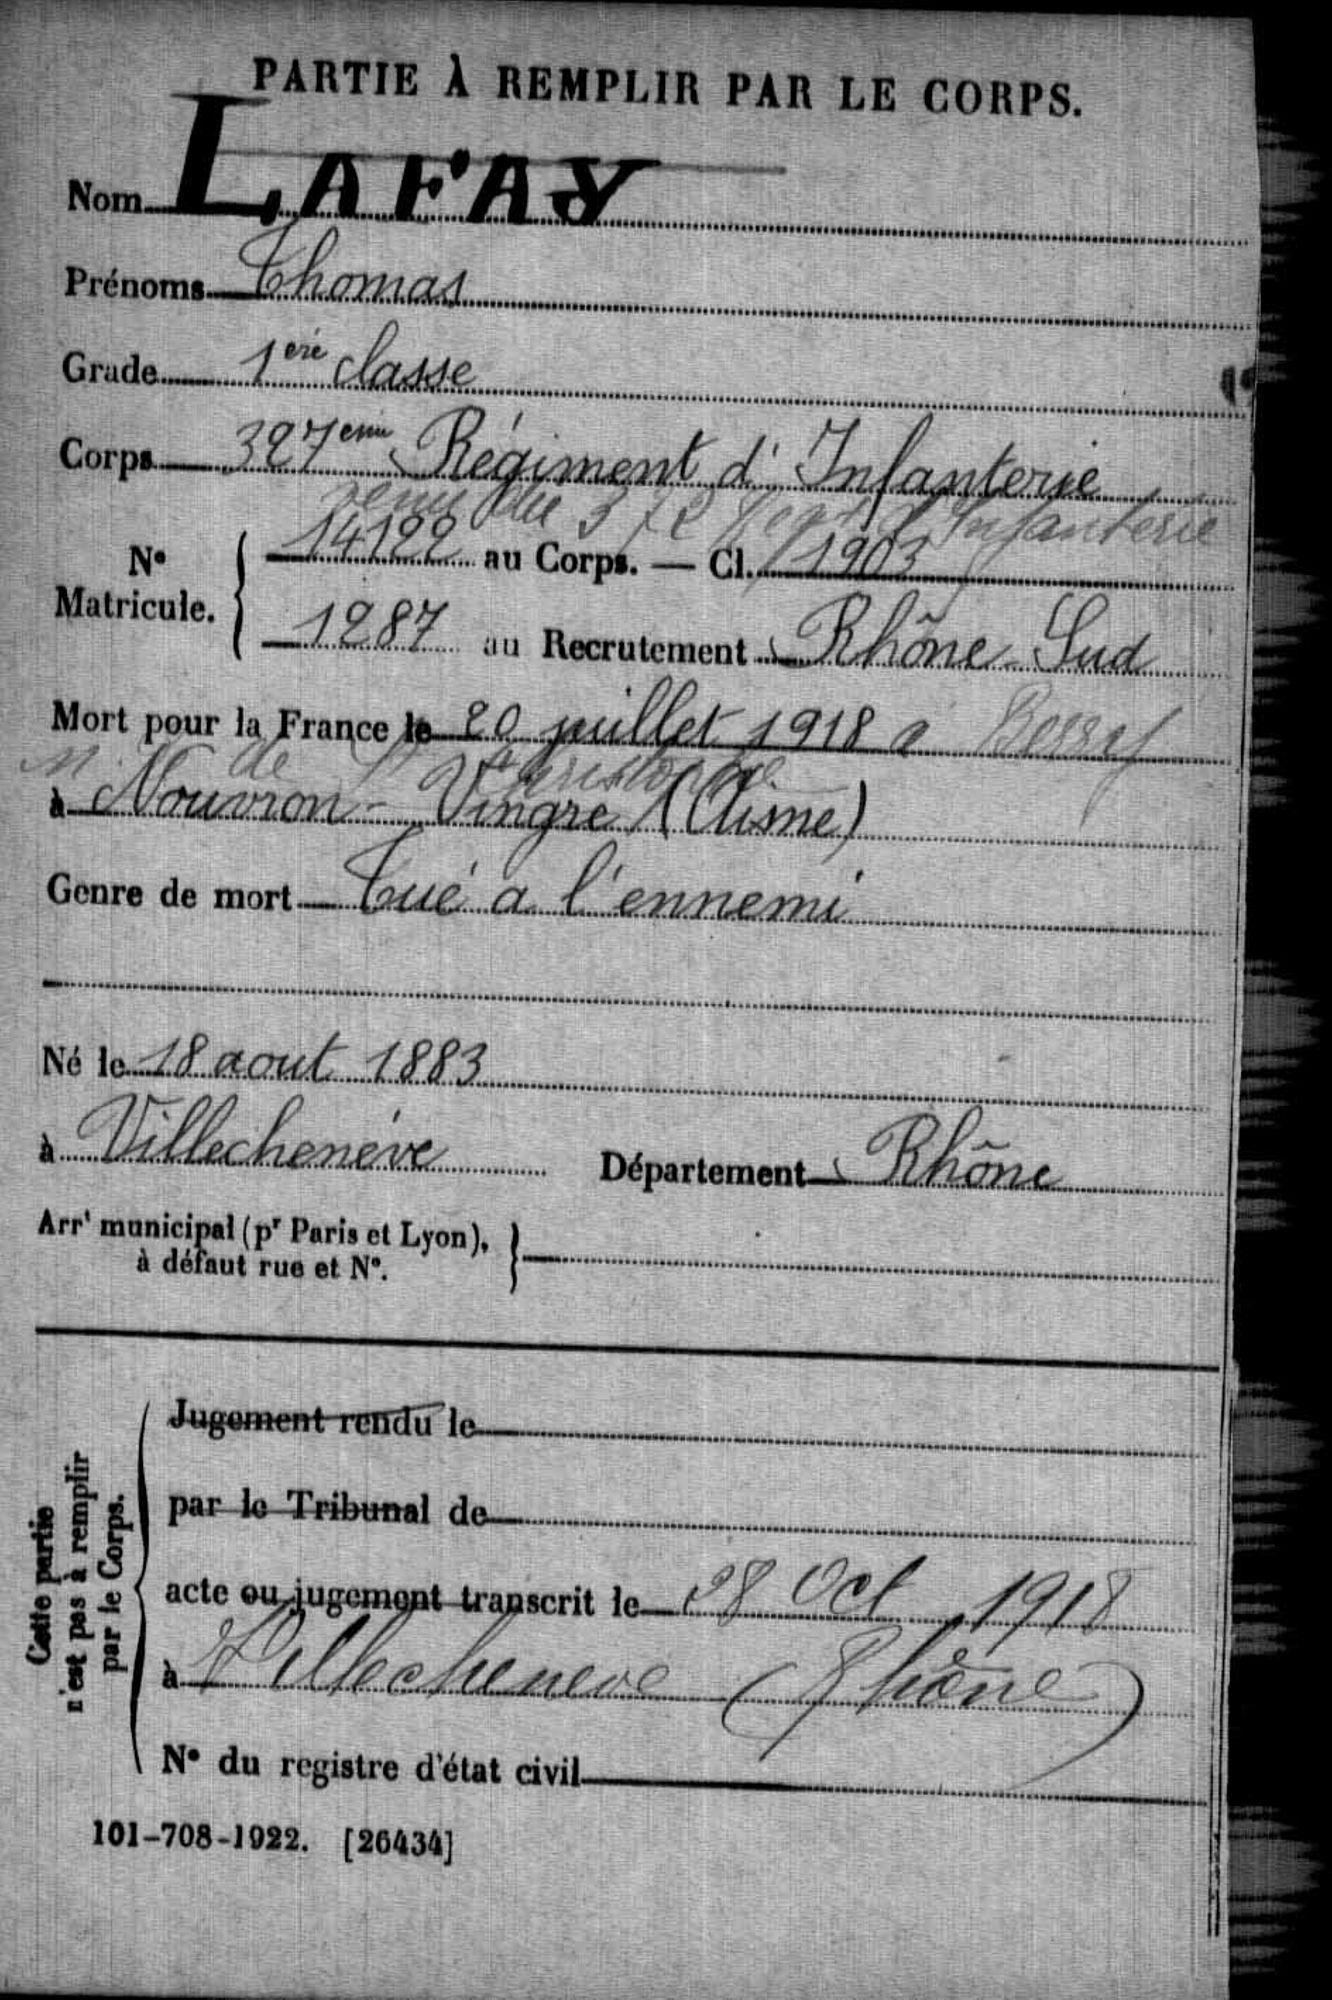 PARTIE À REMPLIR PAR LE CORPS.
Nom LAFAY
Prénoms Thomas
Grade 1ère classe
Corps 327eme Régiment d'Infanterie
venu du 372 Regt d'Infanterie
14199 au Corps. — Cl. 1903
No Matricule.
1287 au Recrutement Rhône Sud
Mort pour la France le 20 juillet 1918 à Berry
de St Christophe
à Nouvron-Vingre (Aisne)
Genre de mort Tué a l'ennemi
Né le 18 aout 1883
à Villechenève Département Rhône
Arrt municipal (pr Paris et Lyon), à défaut rue et No.
Cette partie n'est pas à remplir par le Corps.
Jugement rendu le
par le Tribunal de
acte ou jugement transcrit le 28 Oct 1918
à Villecheneve (Rhône)
No du registre d'état civil
101-708-1922. [26434]